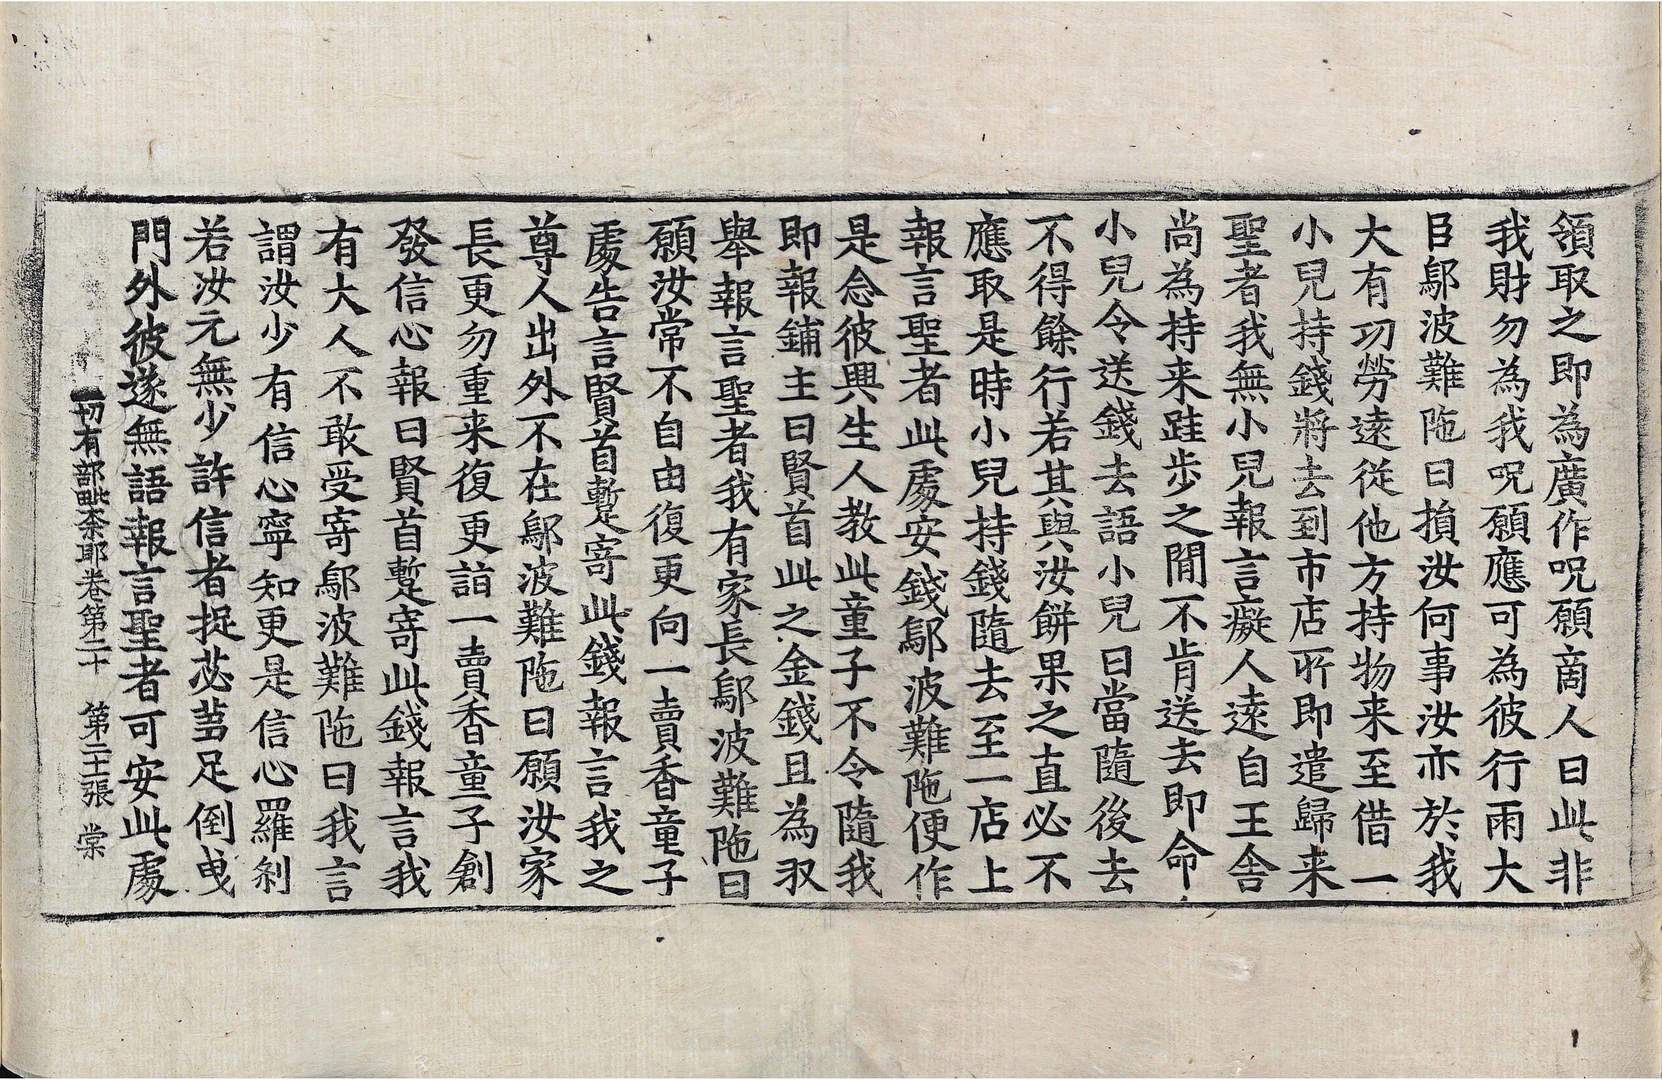 領取之即為廣作呪願啇人曰此非
我財勿為我呪願應可為彼行雨大
臣鄔波難陁曰損汝何事汝亦於我
大有功勞遠從他方持物来至借一
小兒持錢將去到市店所即遣歸来
聖者我無小兒報言癡人遠自王舍
尚為持来跬步之閒不肯送去即命
小兒令送錢去語小兒曰當隨後去
不得餘行若其與汝餅果之直必不
應取是時小兒持錢隨去至一店上
報言聖者此處安錢鄔波難陁便作
是念彼興生人教此童子不令隨我
即報鋪主曰賢首此之金錢且為収
舉報言聖者我有家長鄔波難陁曰
願汝常不自由復更向一賣香童子
處告言賢首蹔寄此錢報言我之
尊人出外不在鄔波難陁曰願汝家
長更勿重来復更詣一賣香童子創
發信心報曰賢首蹔寄此錢報言我
有大人不敢受寄鄔波難陁曰我言
謂汝少有信心寧知更是信心羅剎
若汝元無少許信者捉苾芻足倒曳
門外彼遂無語報言聖者可安此處
一切有部毗奈耶卷第二十 第二十二張 棠